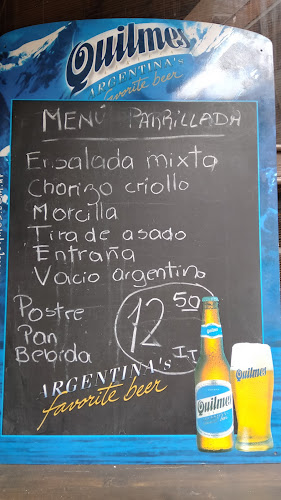 Quilmes
ARGENTINA'S
favorite beer
MENÚ PARRILLADA
Ensalada mixta
Chorizo criollo
Morcilla
Tira de asado
Entraña
Vacio argentino
Postre
Pan
Bebida
12 50
I.I
ARGENTINA'S
favorite beer
Quilmes
Quilmes